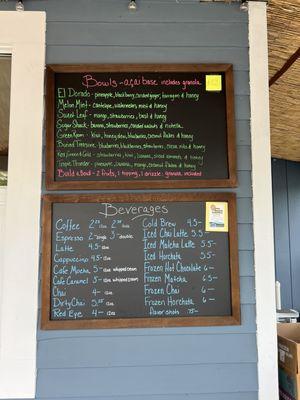 Bowls - açai base includes granola
El Dorado - pineapple, blackberry, candied ginger, & honey
Melon Mint - cantelope, watermelon, mint & honey
Sweet Leaf - mango, strawberries, basil & honey
Sugar Shack - banana, strawberries, candied walnuts & nutella
Green Room - kiwi, honey dew, blueberry, coconut flakes & honey
Buried Treasure - blueberry, blackberry, strawberries, cacao nibs & honey
- strawberries, kiwi, banana, sliced almonds & honey
Tropic Thunder - pineapple, banana, mango, coconut flakes & honey
Build a Bowl - 2 fruits, 1 topping, 1 drizzle, granola included
Beverages
Coffee 2.25 12oz 2.75 16oz
Espresso 2- single 3- double
Latte 4.5- 12oz
Cappuccino 4.5- 12oz
Cafe Mocha 5- 12oz whipped cream
Cafe Caramel 5- 12oz whipped cream
Chai 4- 12oz
Dirty Chai 5.75 12oz
Red Eye 4- 12oz
Cold Brew 4.5-
Iced Chai Latte 5.5-
Iced Matcha Latte 5.5-
Iced Horchata 5.5-
Frozen Hot Chocolate 6-
Frozen Matcha 6-
Frozen Chai 6-
Frozen Horchata 6-
flavor shots .75-